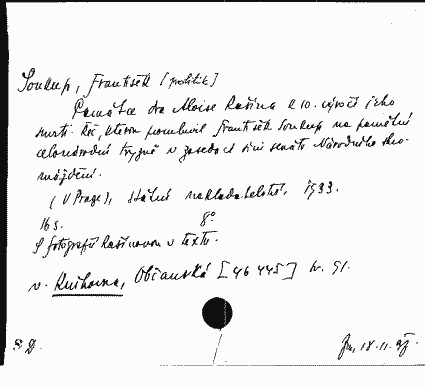 Soukup, František [politik]
Památce dra Aloise Rašína k 10. výročí jeho
smrti. Řeč, kterou promluvil František Soukup na památní
celonárodní tryzně v zasedací síni senátu Národního shro-
máždění.
(V Praze), státní nakladatelství, 1933.
16 s. 8°
S fotografií Rašínovou v textu.
v. Knihovna, Občanská [46 445] sv. 91.